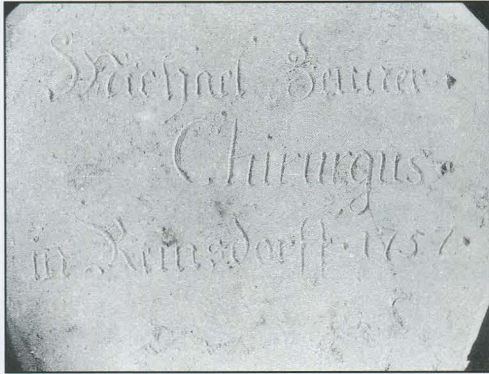 Michael
Chirurgus
in Reinsdorff. 1757.